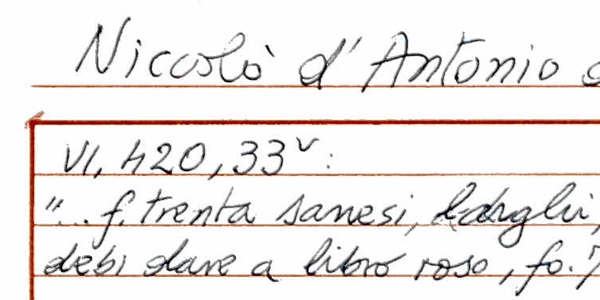 Niccolò d'Antonio
VI, 420, 33v:
"... f. trenta sanesi,
debi dare a libro roso, fo. 7